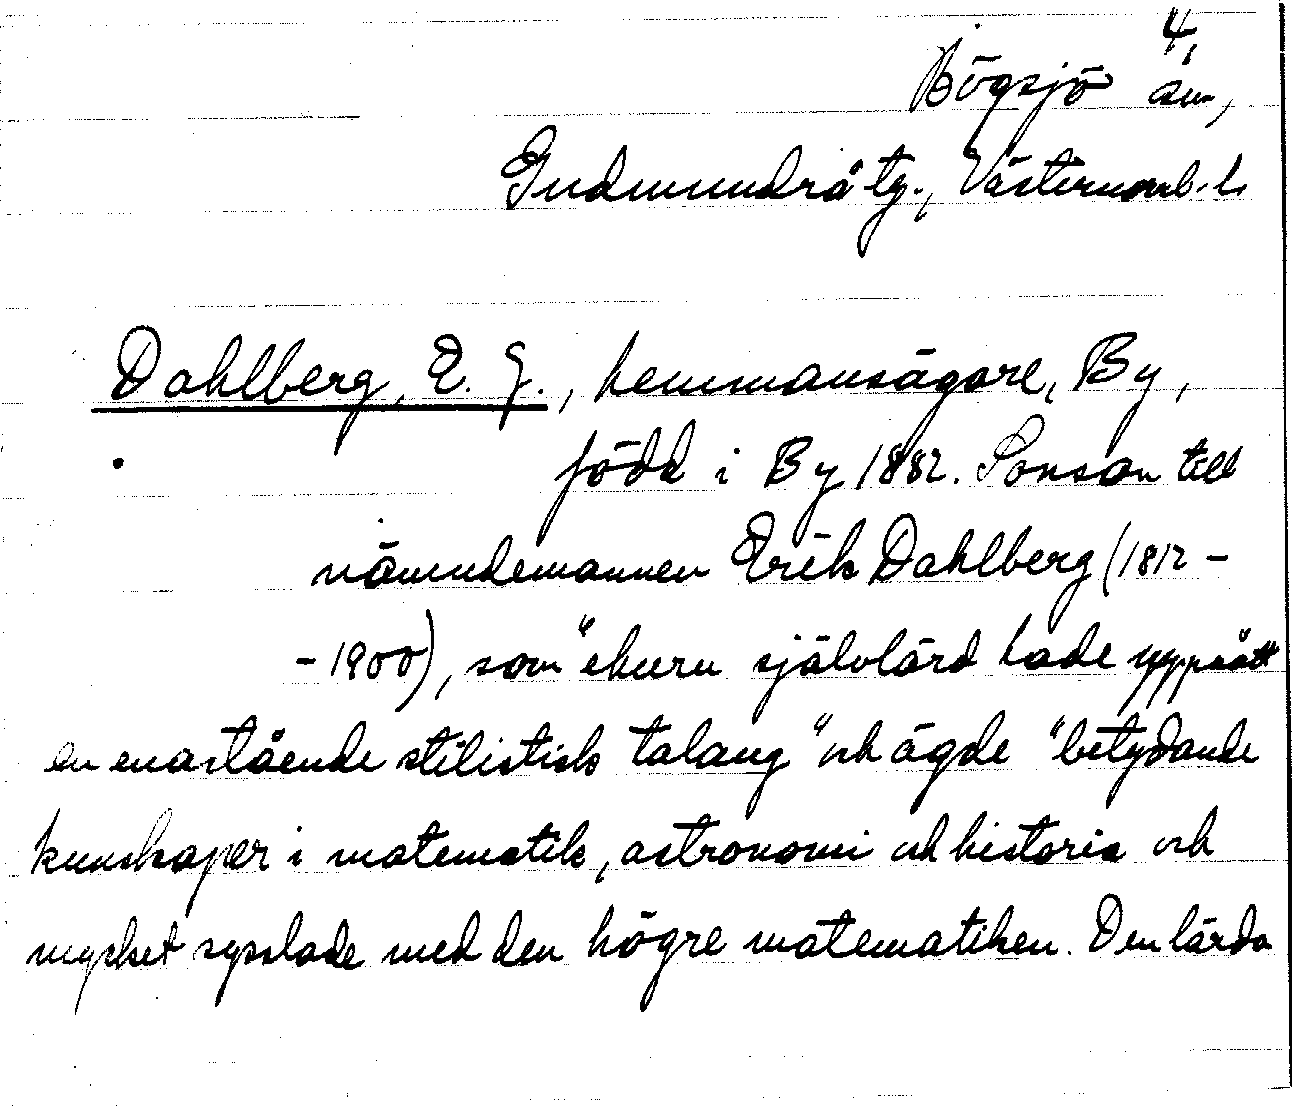 4,
Högsjö sn,
Gudmundrå tg., Västernorrl. l.
Dahlberg, E. J., hemmansägare, By,
född i By 1882. Sonson till
nämndemannen Erik Dahlberg (1812 –
– 1900), som "ehuru självlärd hade uppnått
en enastående stilistisk talang" och ägde "betydande
kunskaper i matematik, astronomi och historia och
mycket sysslade med den högre matematiken. Den lärda